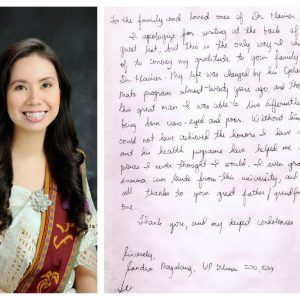 To the family and loved ones of Dr. Flavier:
I apologize for writing at the back of
guest list, but this is the only way I can
of to convey my gratitude to your family
Dr. Flavier. My life was changed by his Oplan
Mata program almost twenty years ago, and thanks
this great man I was able to live differently
being born cross-eyed and poor. Without him
could not have achieved the honors I have
and his health programs have helped me
places I never thought I would. I even grad
summa cum laude from this university, and
all thanks to your great father / grandfather
one.
Thank you, and my deepest condolences
Sincerely,
UP Diliman